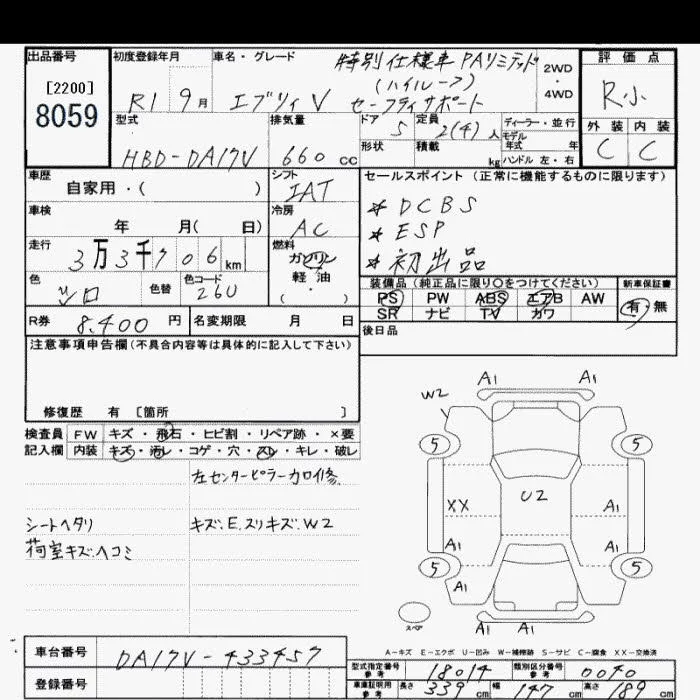 出品番号
[2200]
8059
初度登録年月
R1 9月
車名・グレード
特別仕様車 PAリミテッド
(ハイルーフ)
エブリィV セーフティサポート
2WD
・
4WD
評価点
R小
外装 内装
C C
型式
HBD-DA17V
排気量
660 cc
ドア
5
定員
2(4)人
ディーラー・並行
モデル
年式 年
形状
積載
kg
ハンドル 左・右
車歴
自家用・( )
シフト
IAT
車検
年 月( 日)
冷房
AC
走行
3万3千706km
燃料
ガソリン
軽・油
・
( )
色
シロ
色替
色コード
26U
セールスポイント(正常に機能するものに限ります)
* DCBS
* ESP
* 初出品
装備品(純正品に限り○をつけてください)
PS PW ABS エアB AW
SR ナビ TV カワ
新車保証書
有・無
R券 8.400円
名変期限 月 日
後日品
注意事項申告欄(不具合内容等は具体的に記入して下さい)
修復歴 有 [箇所 ]
検査員 FW キズ・飛石・ヒビ割・リペア跡・×要
記入欄 内装 キズ・汚レ・コゲ・穴・スレ・キレ・破レ
左センターピラーカロイ修
シートヘタリ
キズ.E.スリキズ.W2
荷室キズ.ヘコミ
A1 A1
W2
5 5
XX U2 A1
A1 A1
5 5
A1
スペア
A1 A1
A-キズ E-エクボ U-凹み W-補修跡 S-サビ C-腐食 XX-交換済
車台番号
DA17V-433457
登録番号
型式指定番号
参考
18014
類別区分番号
参考
0040
車庫証明用
参考
長さ 339cm 幅 147cm 高さ 189cm